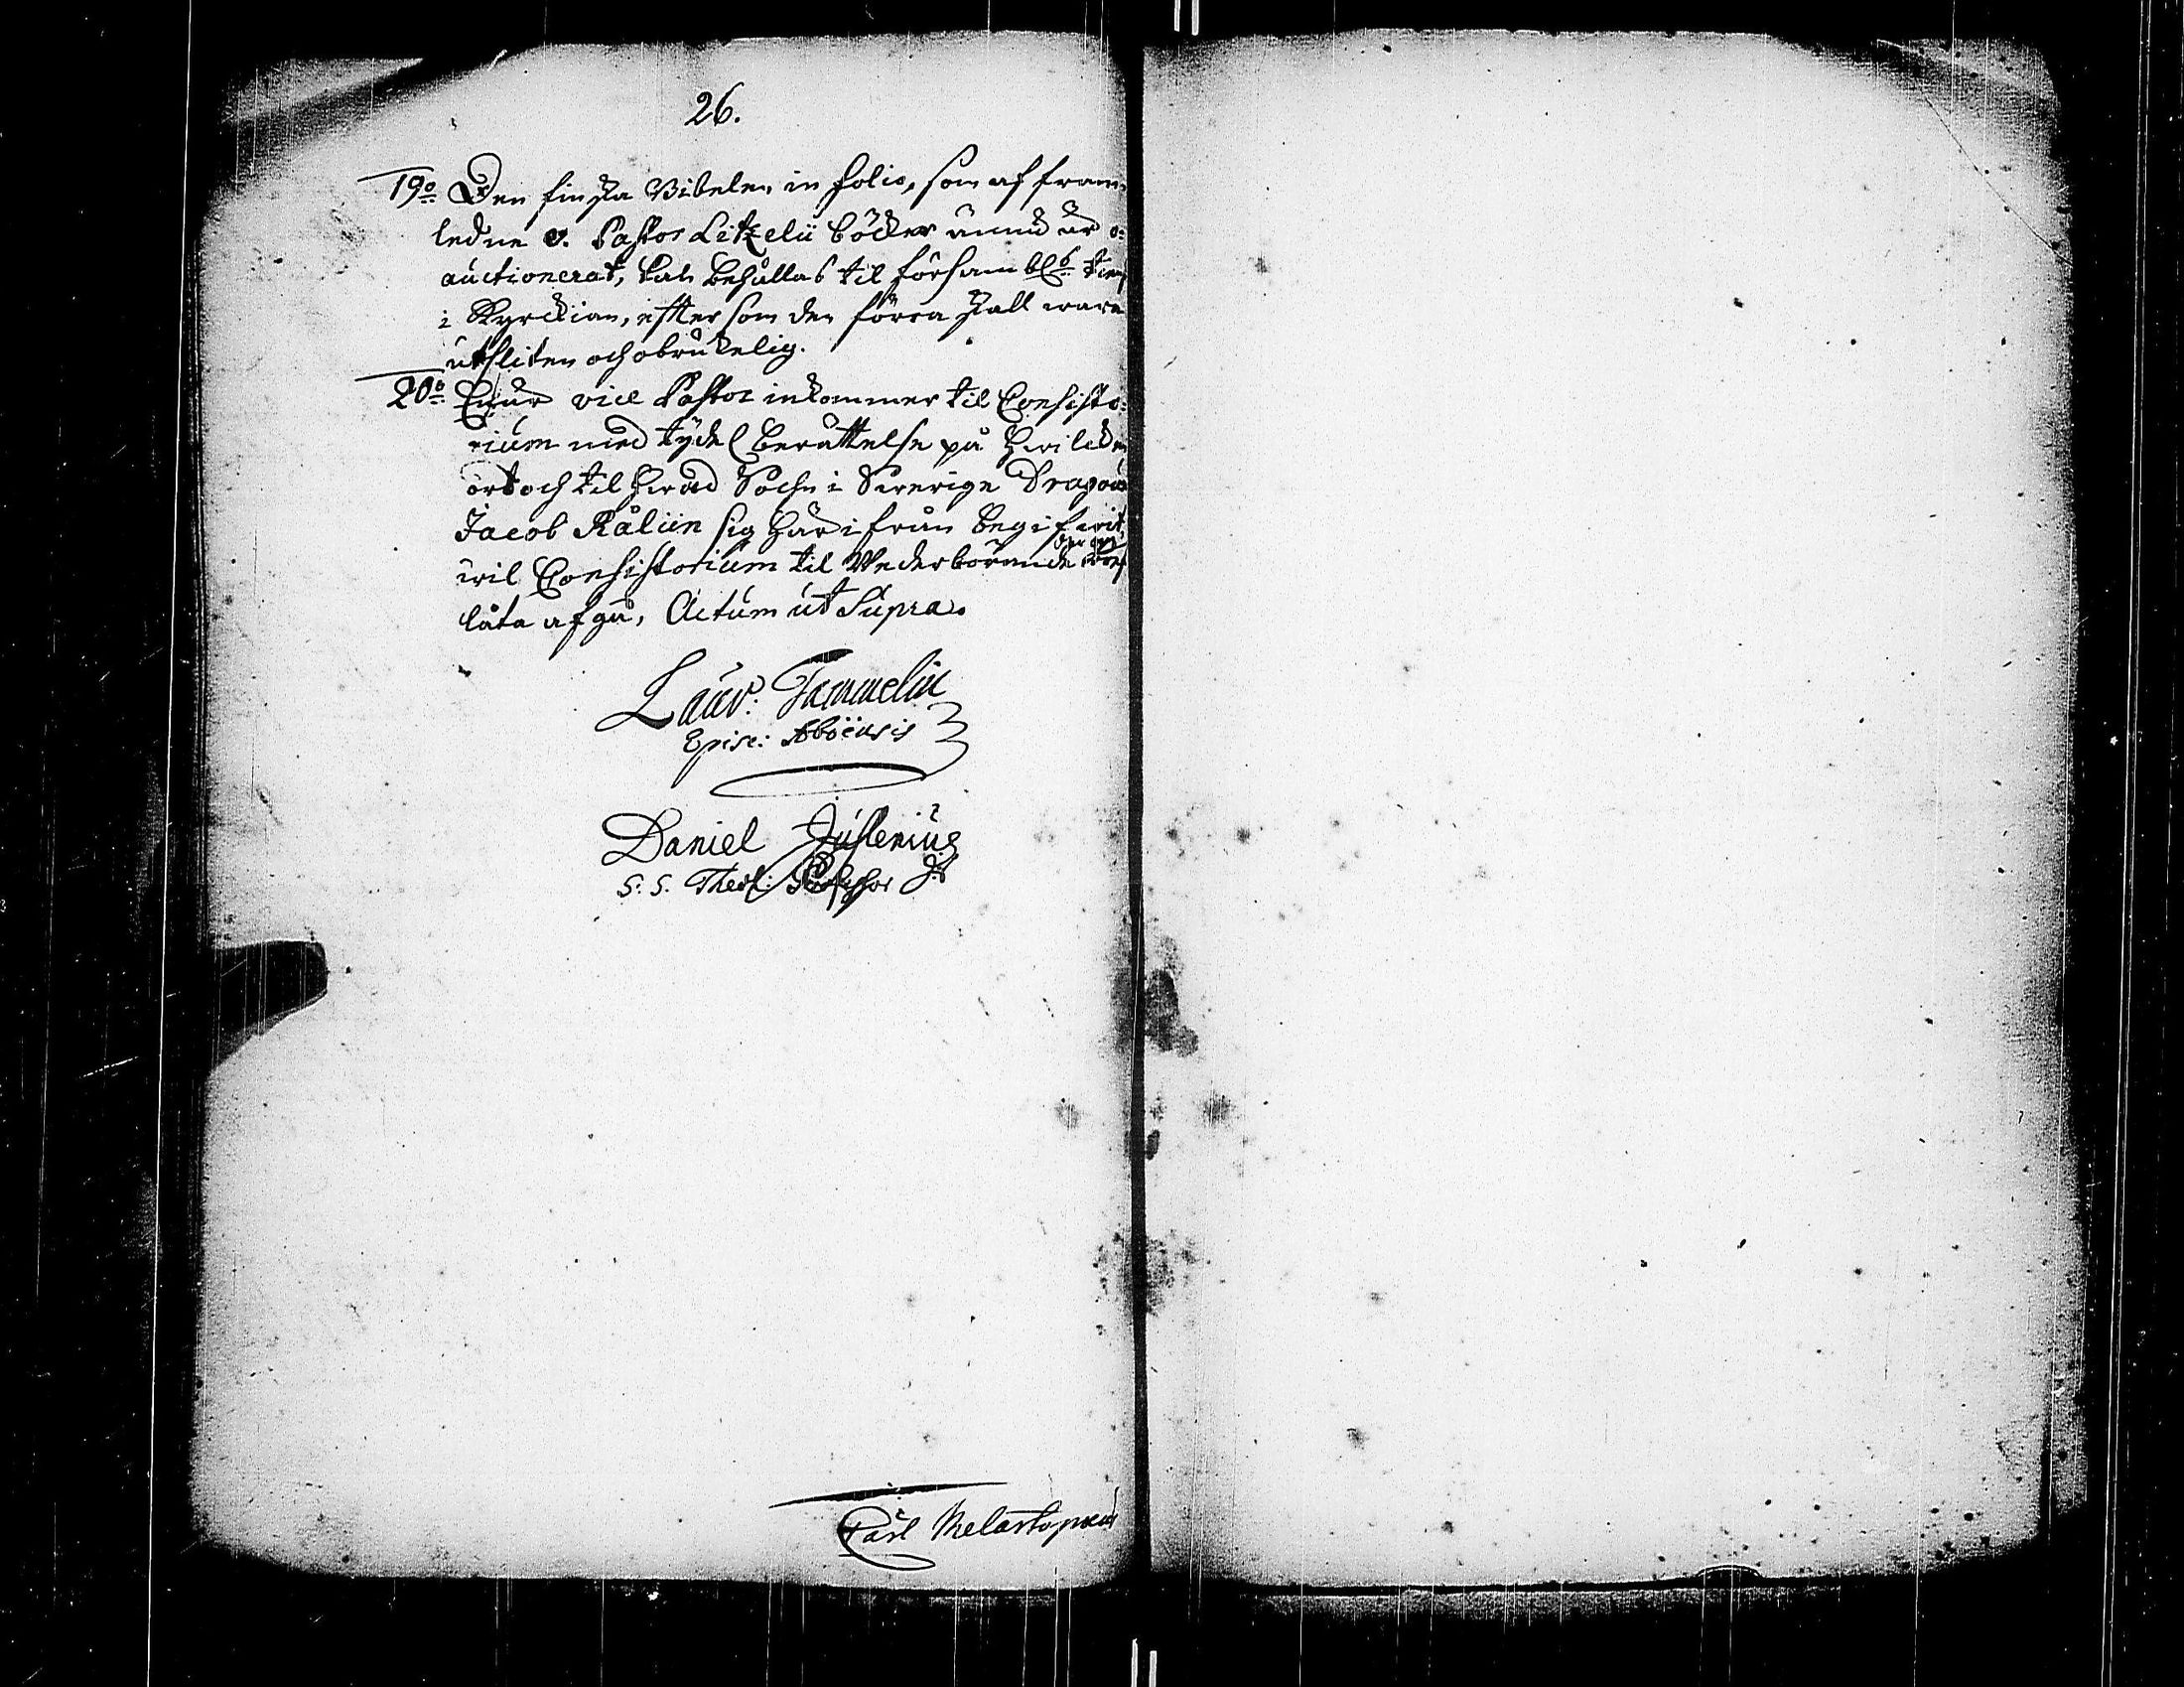 26.
19º Den finska Bibelen in folio, som af fram-
ledne v. Pastor Litzelii böcker ännu är o-
auctionerat, kan behållas til församl:s tienst
i Kyrckian, efter som den förra skall wara
utsliten och obrukelig.
20º Emur vice Pastor inkommer til Consisto-
rium med tydel. berättelse på hwilcken
ort och til hwad Sochn i Swerige Dragon
Jacob Råliin sig härifrån begifwit,
der om
wil Consistorium til Wederbörande
låta afgå, Actum ut Supra.
Laur: Tammelin
Episc: Aboënsis
Daniel Juslenius
S: S. Theol: Professor
Carl Melartopæus